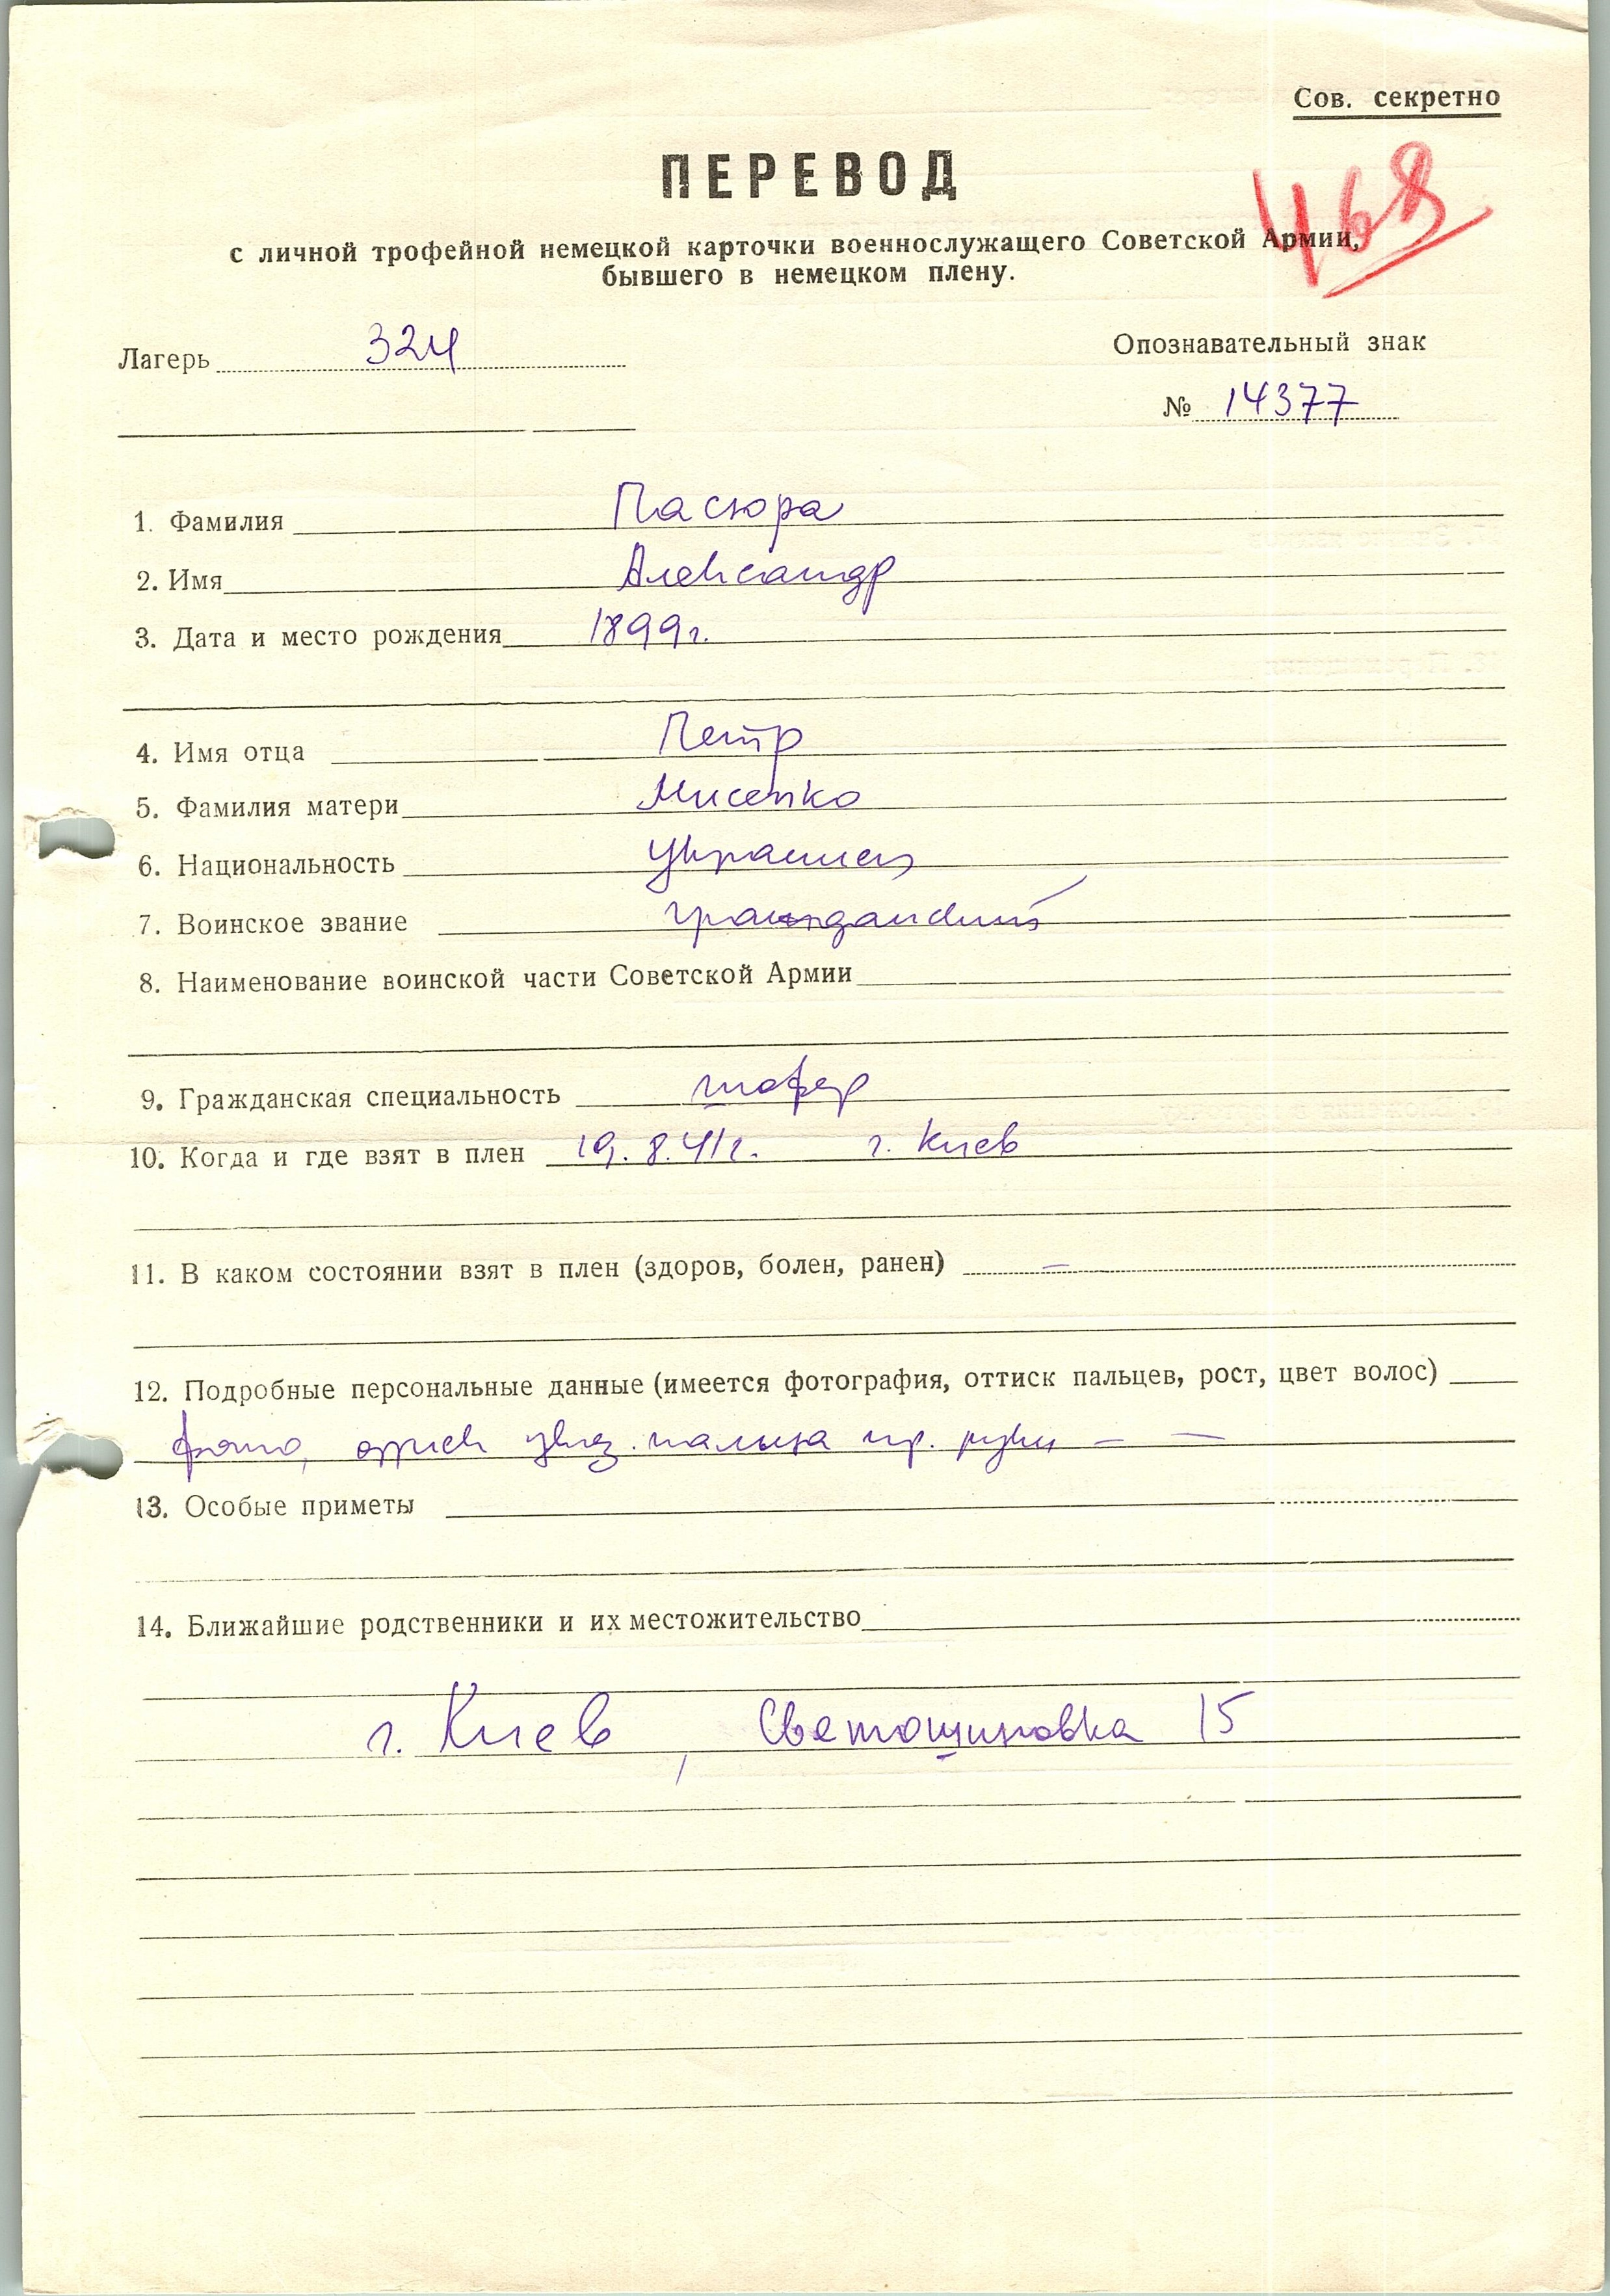 Сов. секретно
468
ПЕРЕВОД
с личной трофейной немецкой карточки военнослужащего Советской Армии,
бывшего в немецком плену.
Лагерь 324
Опознавательный знак
№ 14377
1. Фамилия Пасюра
2. Имя Александр
3. Дата и место рождения 1899г.
4. Имя отца Петр
5. Фамилия матери Мисенко
6. Национальность украинец
7. Воинское звание гражданский
8. Наименование воинской части Советской Армии
9. Гражданская специальность шофер
10. Когда и где взят в плен 19.8.41г. г. Киев
11. В каком состоянии взят в плен (здоров, болен, ранен) —
12. Подробные персональные данные (имеется фотография, оттиск пальцев, рост, цвет волос)
фото, указ. пальца пр. руки — —
13. Особые приметы
14. Ближайшие родственники и их местожительство
г. Киев, Светошиновка 15